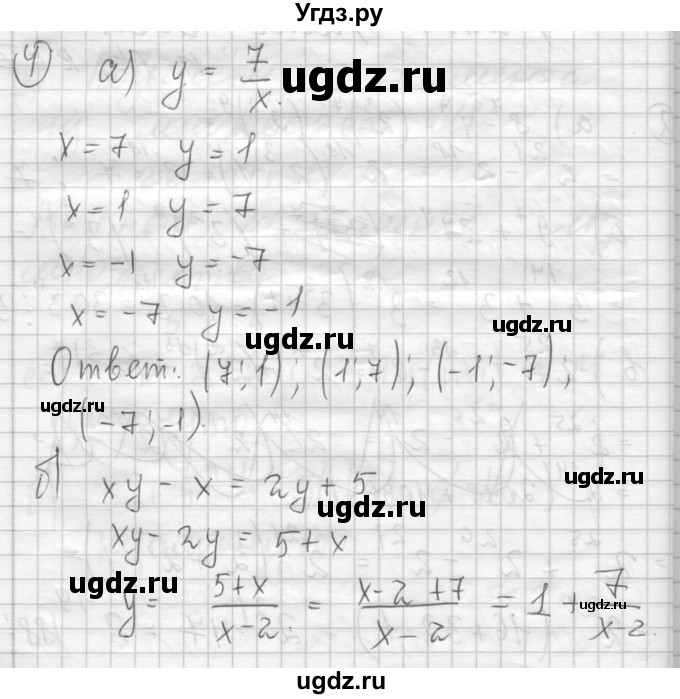 Угдз.ру
④ а) y = 7/x.
ugdz.ru
x = 7 y = 1
x = 1 y = 7
x = -1 y = -7
x = -7 y = -1
ugdz.ru
ugdz.ru
Ответ: (7; 1); (1; 7); (-1; -7);
ugdz.ru
(-7; -1).
б) xy - x = 2y + 5
ugdz.ru
xy - 2y = 5 + x
ugdz.ru
y = (5+x)/(x-2) = (x-2+7)/(x-2) = 1 + 7/(x-2).
ugdz.ru
ugdz.ru
ugdz.ru